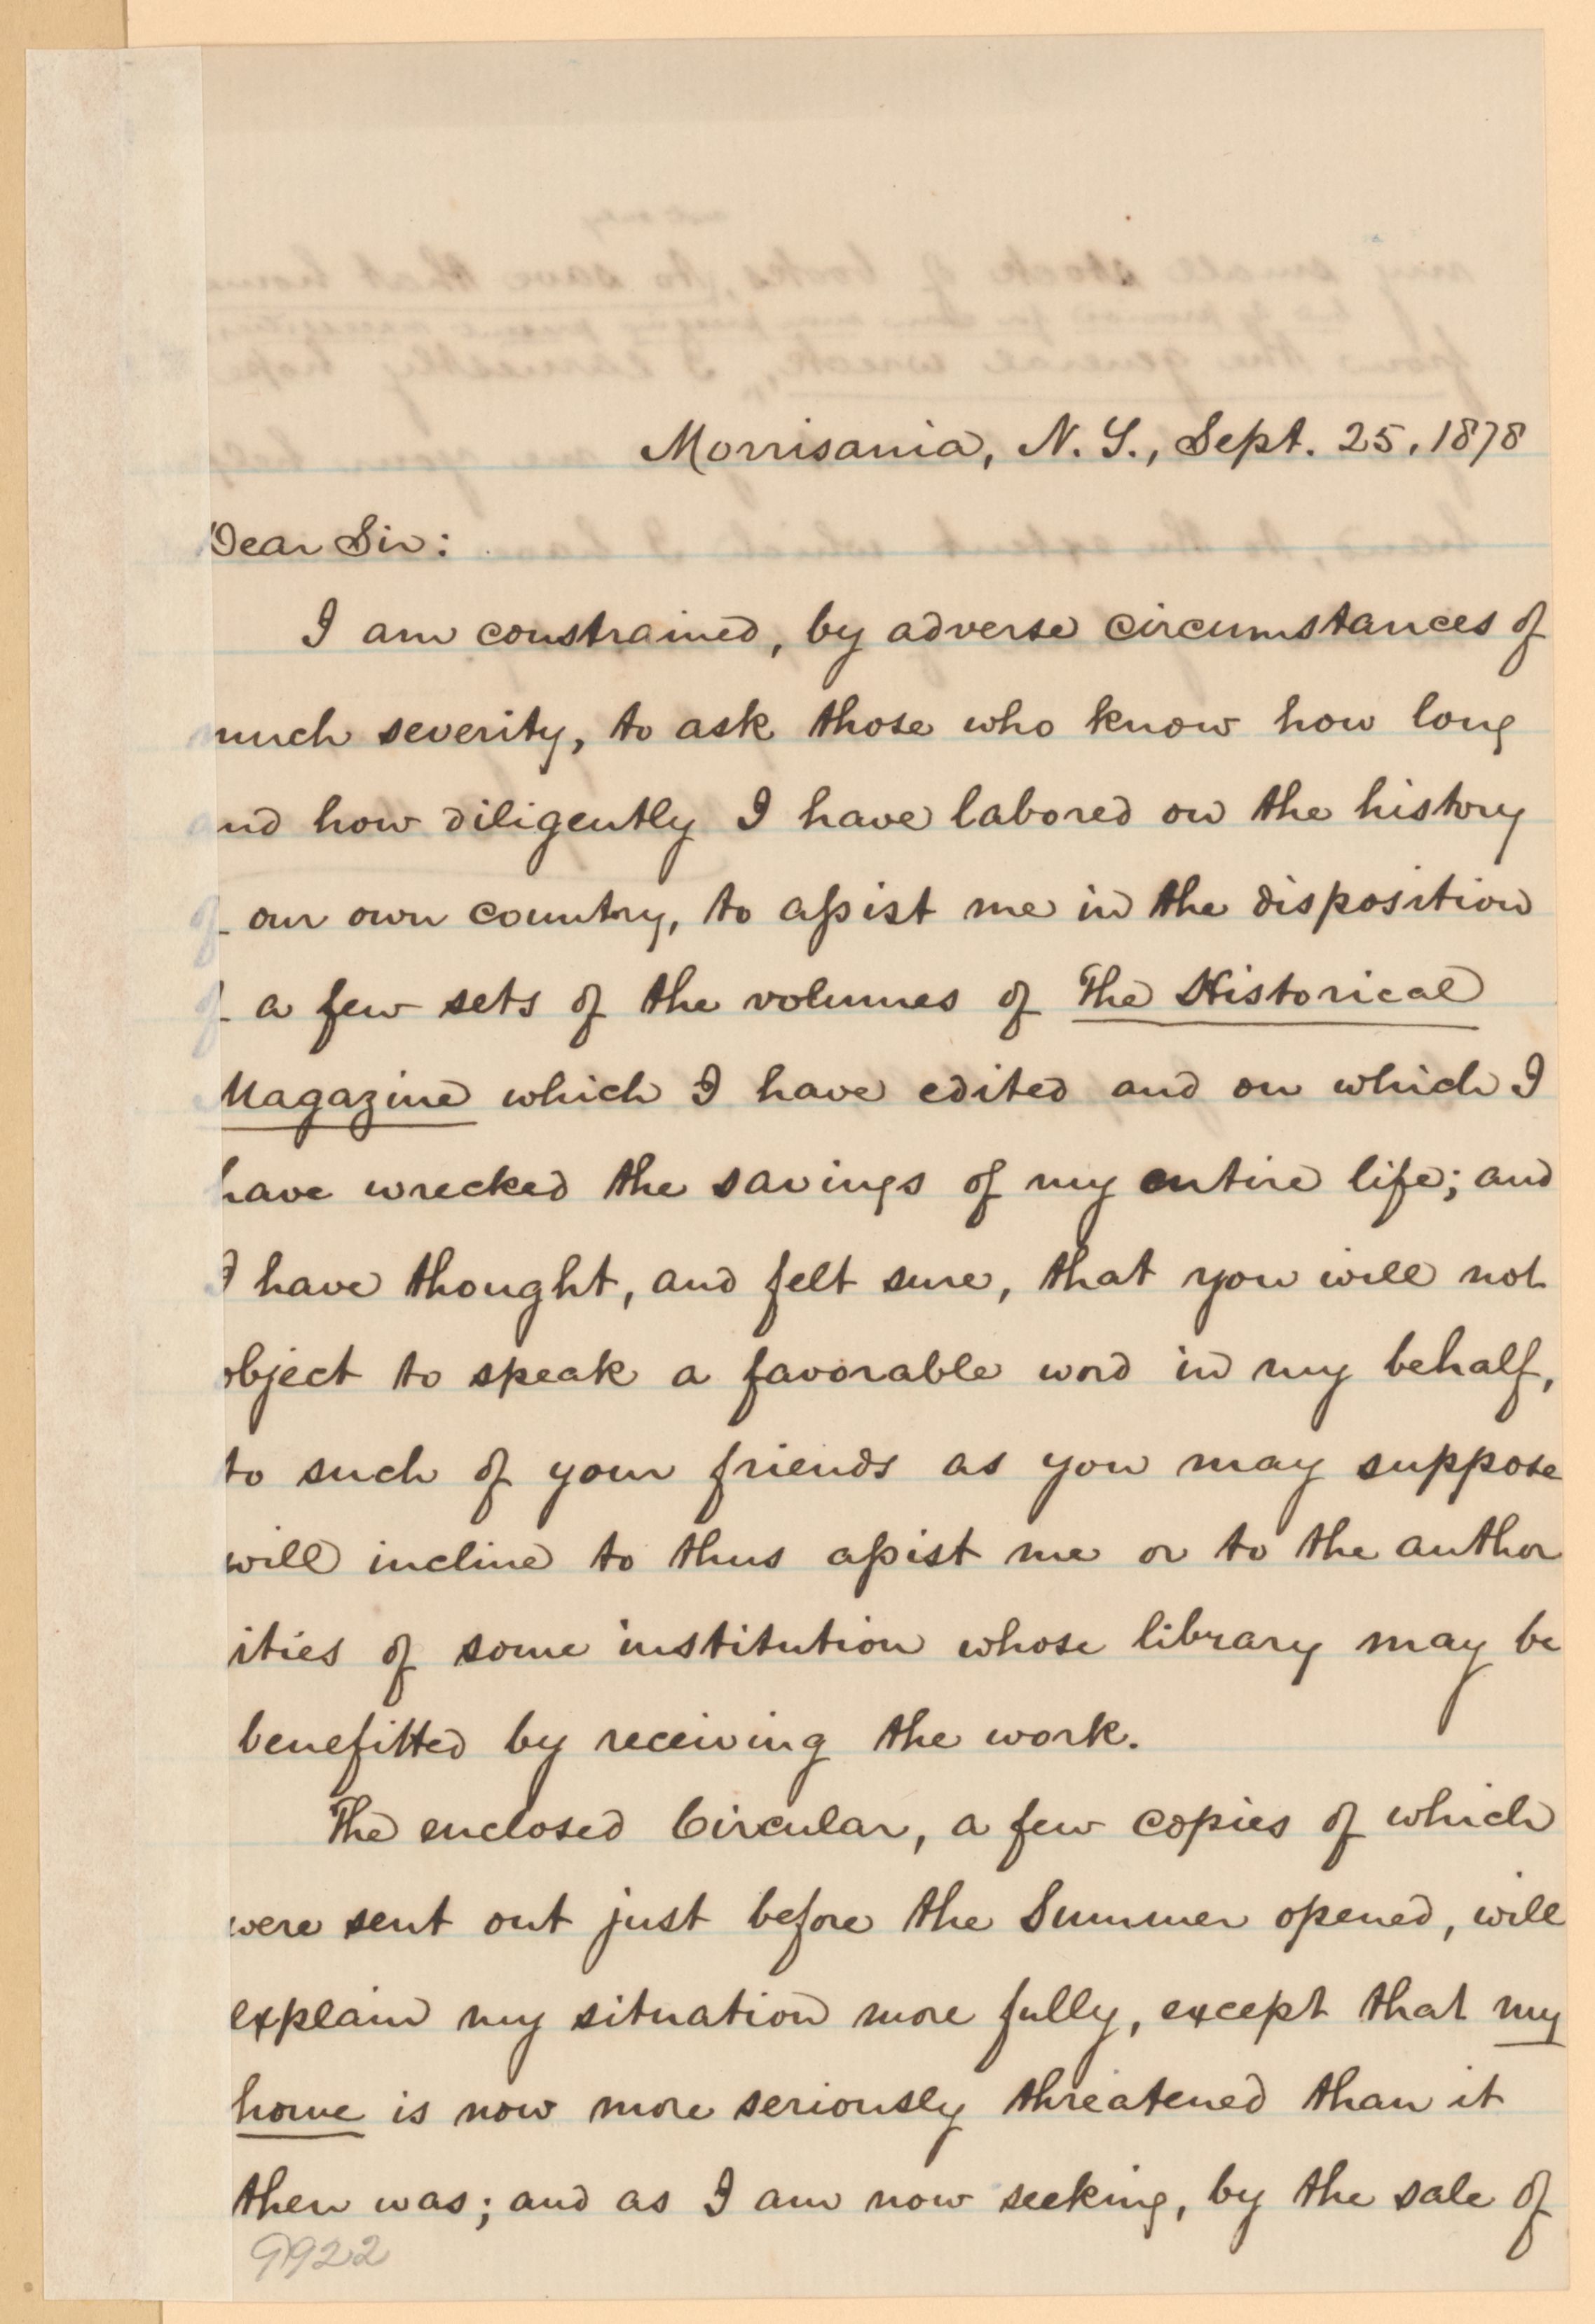 Morrisania, N. Y., Sept. 25, 1878
Dear Sir:
I am constrained, by adverse circumstances of
much severity, to ask those who know how long
and how diligently I have labored on the history
of our own country, to assist me in the disposition
of a few sets of the volumes of The Historical
Magazine which I have edited and on which I
have wrecked the savings of my entire life; and
I have thought, and felt sure, that you will not
object to speak a favorable word in my behalf,
to such of your friends as you may suppose
will incline to thus assist me or to the author
ities of some institution whose library may be
benefitted by receiving the work.
The enclosed Circular, a few copies of which
were sent out just before the Summer opened, will
explain my situation more fully, except that my
home is now more seriously threatened than it
then was; and as I am now seeking, by the sale of
9922